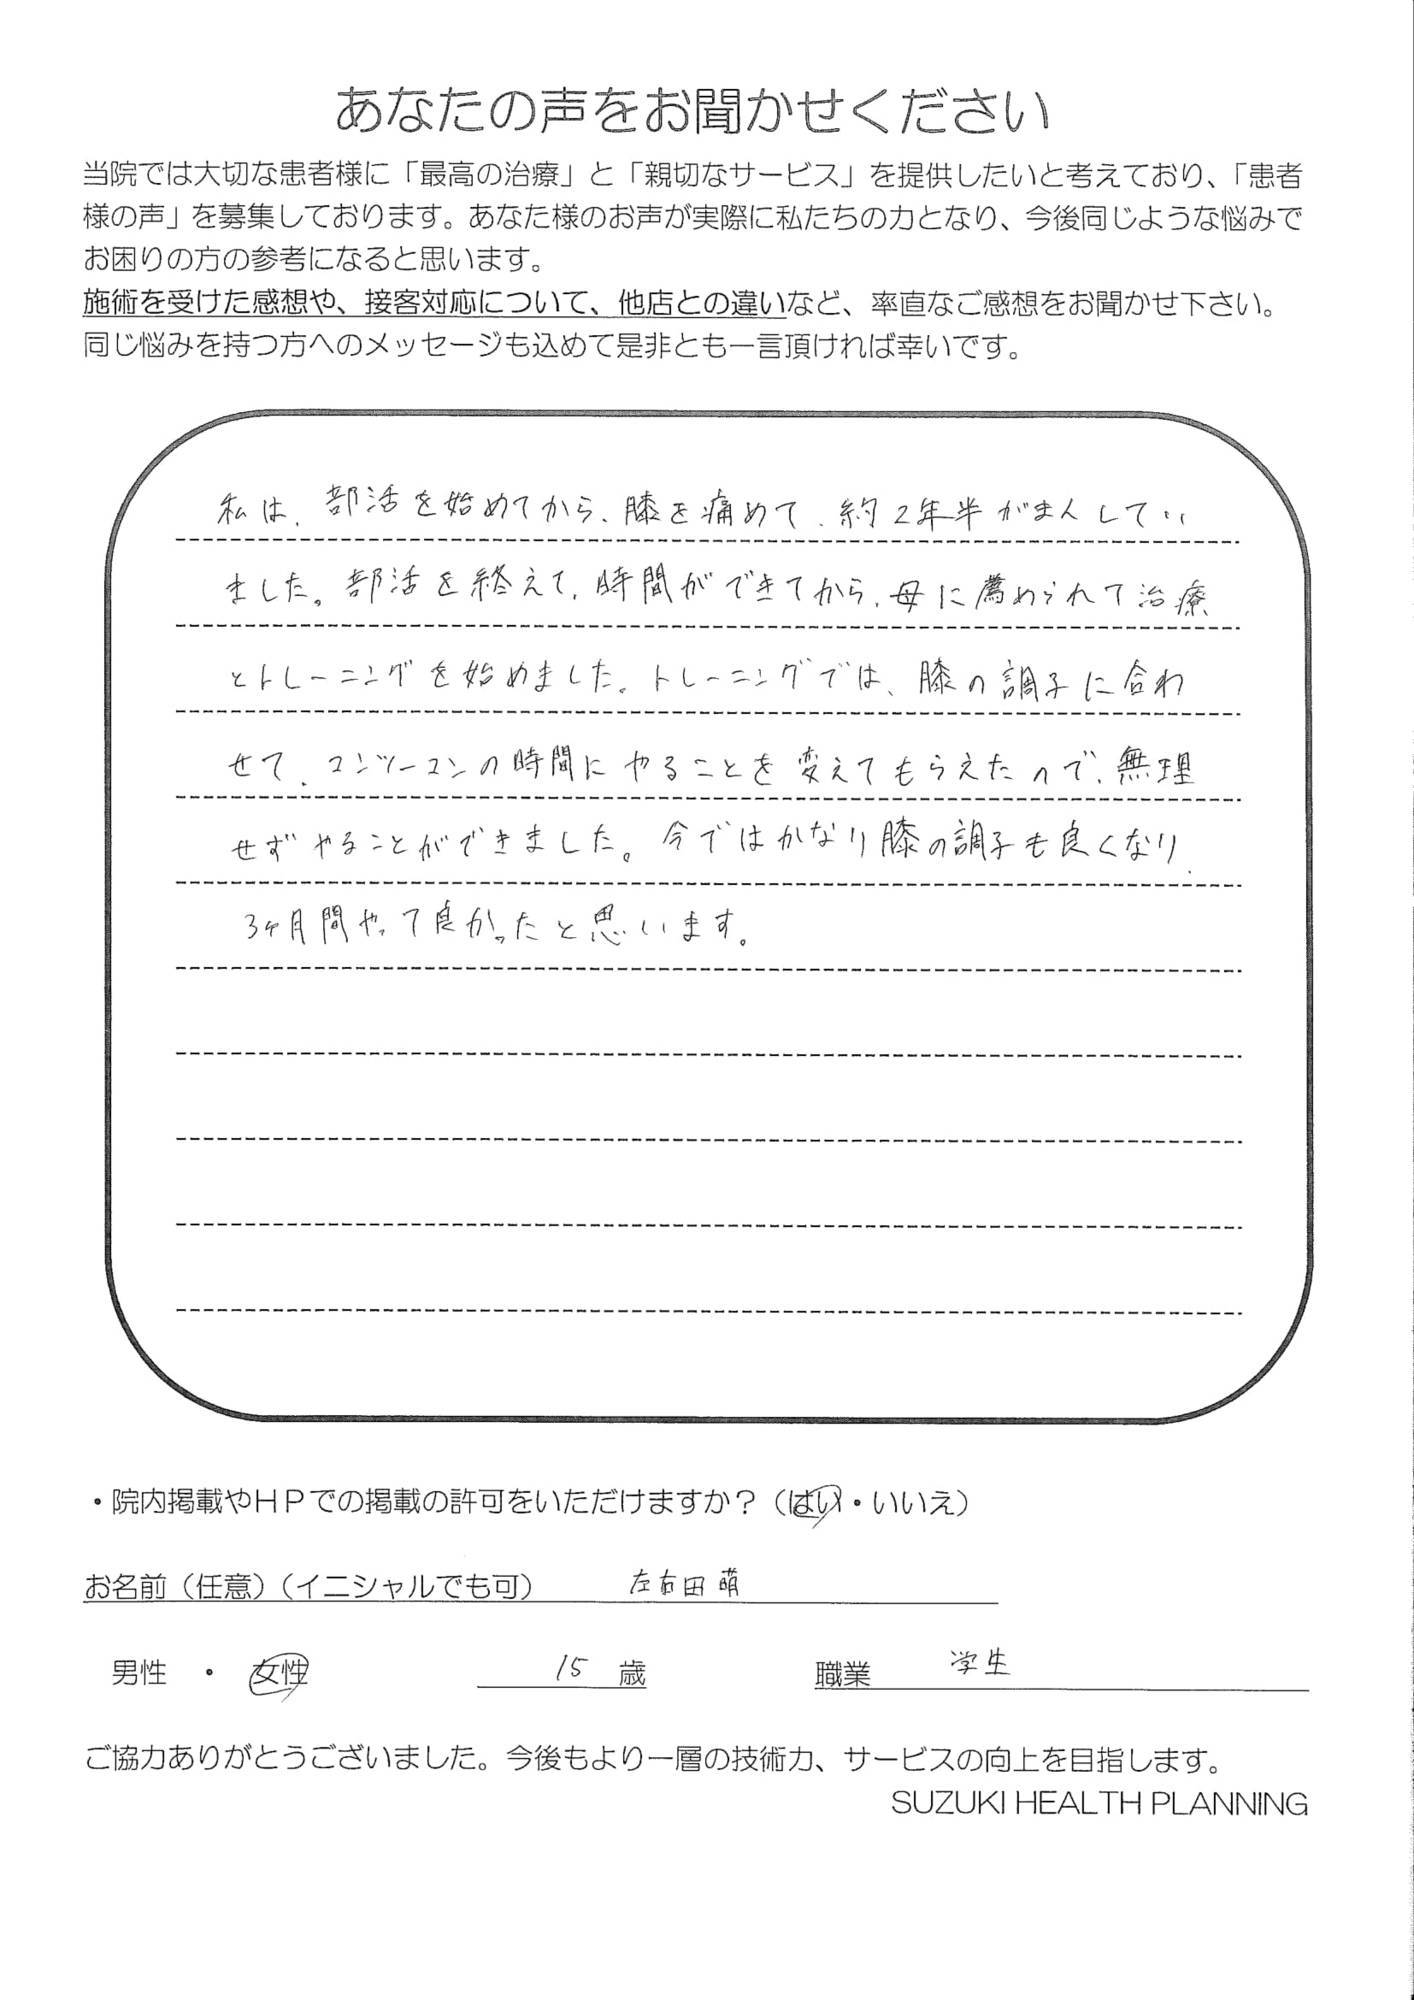 あなたの声をお聞かせください
当院では大切な患者様に「最高の治療」と「親切なサービス」を提供したいと考えており、「患者
様の声」を募集しております。あなた様のお声が実際に私たちの力となり、今後同じような悩みで
お困りの方の参考になると思います。
施術を受けた感想や、接客対応について、他店との違いなど、率直なご感想をお聞かせ下さい。
同じ悩みを持つ方へのメッセージも込めて是非とも一言頂ければ幸いです。
私は、部活を始めてから、膝を痛めて、約2年半がまんしてい
ました。部活を終えて、時間ができてから、母に薦められて治療
とトレーニングを始めました。トレーニングでは、膝の調子に合わ
せて、マンツーマンの時間にやることを変えてもらえたので、無理
せずやることができました。今ではかなり膝の調子も良くなり、
3ヶ月間やって良かったと思います。
・院内掲載やHPでの掲載の許可をいただけますか？（はい・いいえ）
お名前（任意）（イニシャルでも可） 左右田 萌
男性 ・ 女性 15 歳 職業 学生
ご協力ありがとうございました。今後もより一層の技術力、サービスの向上を目指します。
SUZUKI HEALTH PLANNING